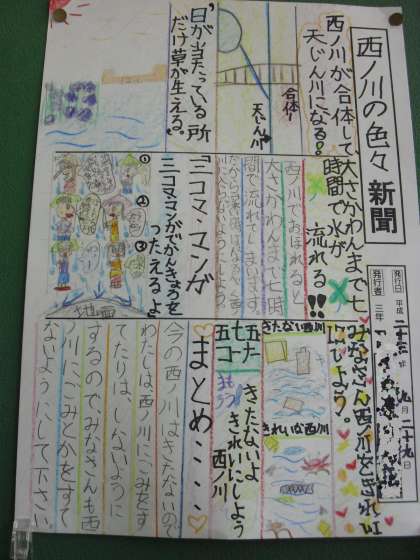 西ノ川の色々新聞
発行日 平成二十三年九月二十九日
発行者 三年
西ノ川が合体して、
天じん川になる!!
合体!
天じん川
日が当たっている所
だけ草が生える。
大さかわんまで七
時間で水が
流れる!!
西ノ川でおぼれると
大さかわんまで七時
間で流れてしまいます。
「三コマ・マンガ」
三コマ・マンガでかんきょうを
うたえるよ
①
②
③
地面
みなさん西ノ川をきれい
にしよう。
きたない西川
きれいな西川
五七五コーナー
きたないよ
きれいにしよう
西ノ川
まとめ・・・
今の西ノ川はきたないので
わたしは、西川にごみをす
てたりは、しないように
するのでみなさんも西
ノ川にごみとかをすて
ないようにして下さい